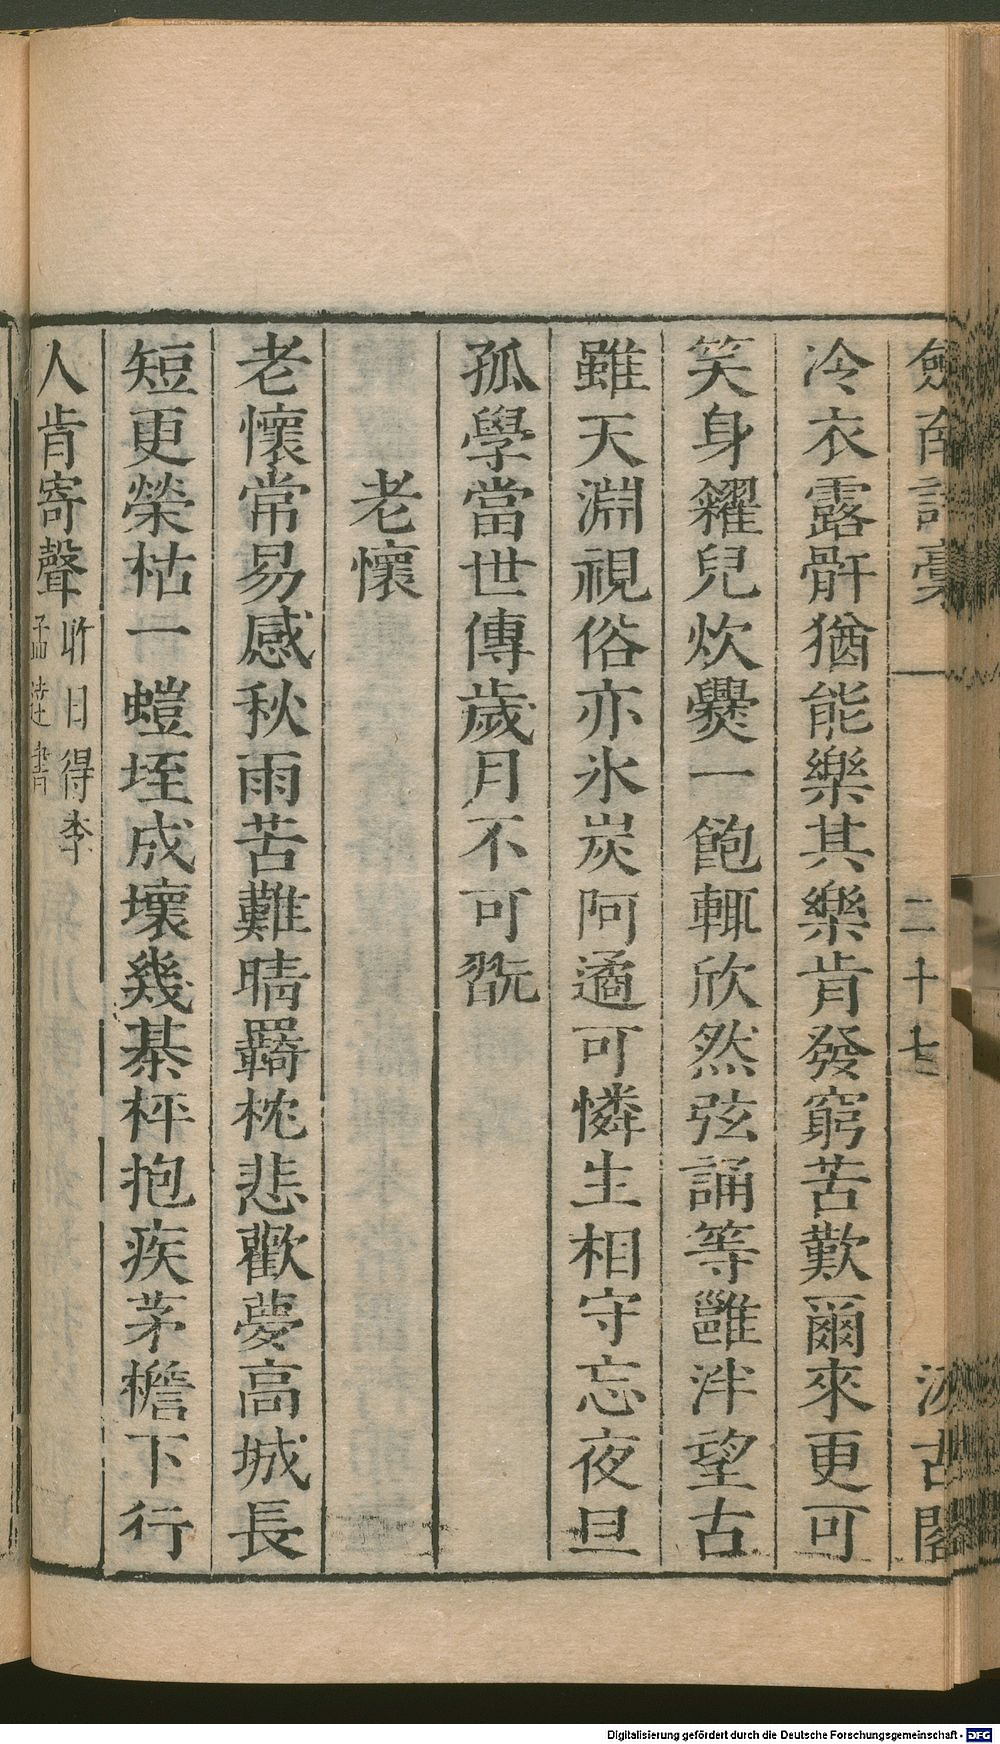 劍南詩稾
二十七
汲古閣
冷衣露骭猶能樂其樂肯發窮苦歎爾來更可
笑身糴兒炊爨一飽輒欣然弦誦等雝泮望古
雖天淵視俗亦氷炭阿遹可憐生相守忘夜旦
孤學當世傳歲月不可翫
老懷
老懷常易感秋雨苦難晴羇枕悲歡夢高城長
短更榮枯一螘垤成壞幾棊枰抱疾茅檐下行
人肯寄聲
昨日得李
孟達書
Digitalisierung gefördert durch die Deutsche Forschungsgemeinschaft - DFG